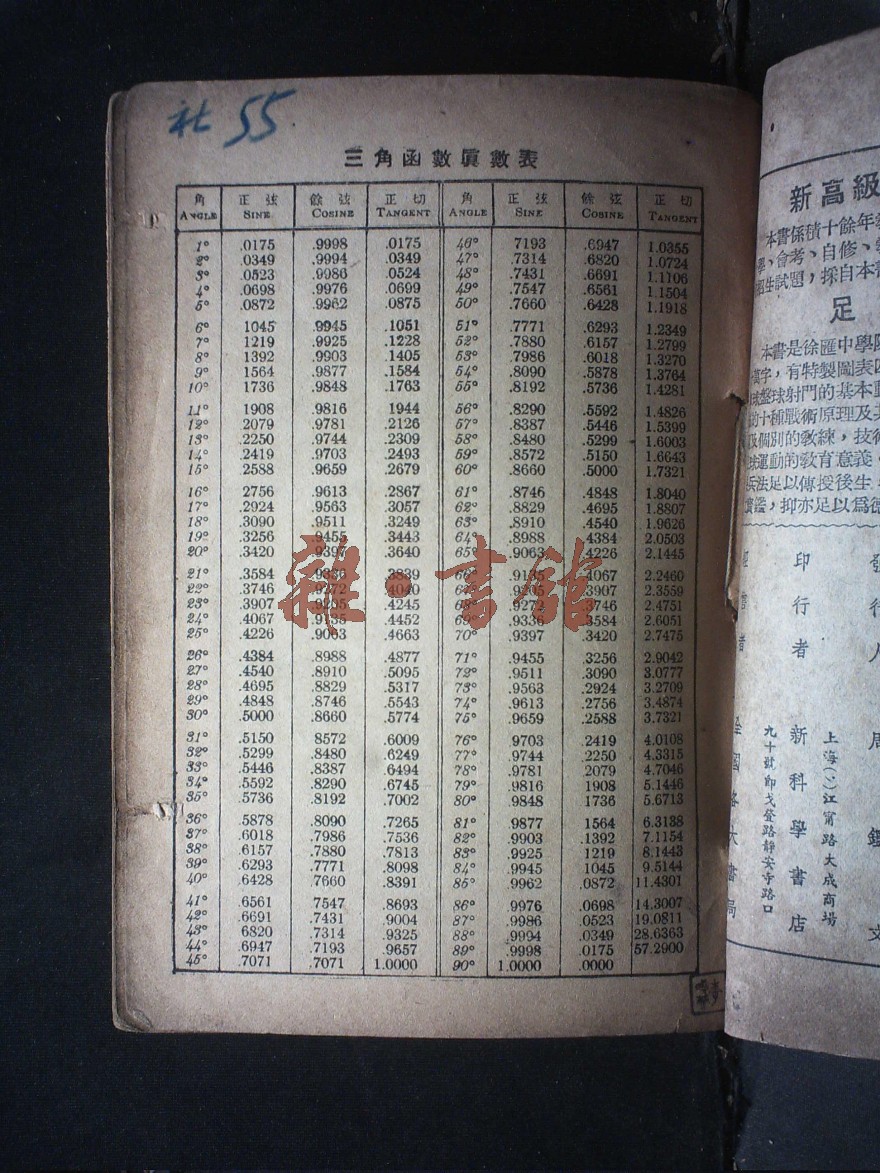 社 55
三角函數眞數表
角 正弦 餘弦 正切 角 正弦 餘弦 正切
ANGLE SINE COSINE TANGENT ANGLE SINE COSINE TANGENT
1° .0175 .9998 .0175 46° .7193 .6947 1.0355
2° .0349 .9994 .0349 47° .7314 .6820 1.0724
3° .0523 .9986 .0524 48° .7431 .6691 1.1106
4° .0698 .9976 .0699 49° .7547 .6561 1.1504
5° .0872 .9962 .0875 50° .7660 .6428 1.1918
6° 1045 .9945 .1051 51° .7771 .6293 1.2349
7° 1219 .9925 .1228 52° .7880 .6157 1.2799
8° 1392 .9903 .1405 53° .7986 .6018 1.3270
9° 1564 .9877 .1584 54° .8090 .5878 1.3764
10° 1736 .9848 .1763 55° .8192 .5736 1.4281
11° 1908 .9816 1944 56° .8290 .5592 1.4826
12° 2079 .9781 .2126 57° .8387 .5446 1.5399
13° .2250 .9744 .2309 58° .8480 .5299 1.6003
14° .2419 .9703 .2493 59° .8572 .5150 1.6643
15° .2588 .9659 .2679 60° .8660 .5000 1.7321
16° 2756 .9613 .2867 61° .8746 .4848 1.8040
17° .2924 .9563 .3057 62° .8829 .4695 1.8807
18° .3090 .9511 .3249 63° .8910 .4540 1.9626
19° .3256 .9455 .3443 64° .8988 .4384 2.0503
20° .3420 .9397 .3640 65° .9063 .4226 2.1445
21° .3584 .9336 .3839 66° .9135 .4067 2.2460
22° .3746 .9272 .4040 67° .9205 .3907 2.3559
23° .3907 .9205 .4245 68° .9272 .3746 2.4751
24° .4067 .9135 .4452 69° .9336 .3584 2.6051
25° .4226 .9063 .4663 70° .9397 .3420 2.7475
26° .4384 .8988 .4877 71° .9455 .3256 2.9042
27° .4540 .8910 .5095 72° .9511 .3090 3.0777
28° .4695 .8829 .5317 73° .9563 .2924 3.2709
29° .4848 .8746 .5543 74° .9613 .2756 3.4874
30° .5000 .8660 .5774 75° .9659 .2588 3.7321
31° .5150 8572 .6009 76° .9703 .2419 4.0108
32° .5299 .8480 .6249 77° .9744 .2250 4.3315
33° .5446 .8387 .6494 78° .9781 2079 4.7046
34° .5592 .8290 .6745 79° .9816 1908 5.1446
35° .5736 .8192 .7002 80° .9848 1736 5.6713
36° .5878 .8090 .7265 81° .9877 1564 6.3138
37° .6018 .7986 .7536 82° .9903 .1392 7.1154
38° .6157 .7880 .7813 83° .9925 1219 8.1443
39° .6293 .7771 .8098 84° .9945 1045 9.5144
40° .6428 .7660 .8391 85° .9962 .0872 11.4301
41° .6561 .7547 .8693 86° .9976 .0698 14.3007
42° .6691 .7431 .9004 87° .9986 .0523 19.0811
43° 6820 .7314 .9325 88° .9994 .0349 28.6363
44° .6947 .7193 .9657 89° .9998 .0175 57.2900
45° .7071 .7071 1.0000 90° 1.0000 .0000
雜·書館
新高級
本書係積十餘年
學、會考、自修、
招生試題，採自本書
足
本書是徐匯中學
萬字，有特製圖表
球盤球射門的基本
的十種戰術原理及
及個別的教練，技術
球運動的教育意義
兵法足以傳授後生
寶鑑，抑亦足以爲
發行人 周鑑文
上海(〤)江甯路大成商場
印行者 新科學書店
九十號卽戈登路靜安寺路口
全國各大書局